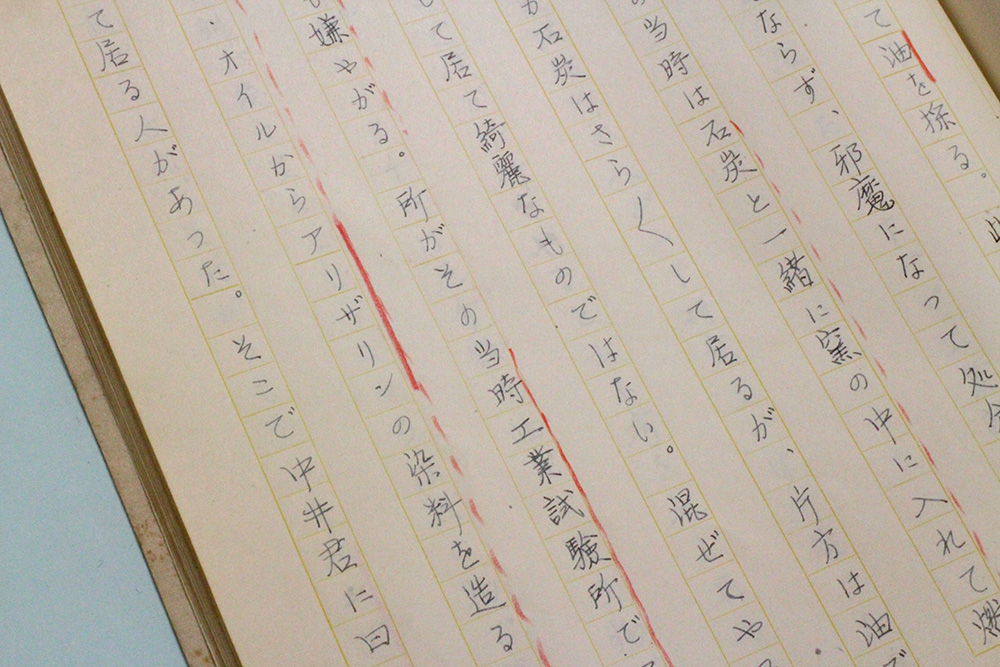 て油を採る。
ならず、邪魔になって処分
の当時は石炭と一緒に窯の中に入れて燃
石炭はさら〱して居るが、片方は油
して居て綺麗なものではない。混ぜてや
嫌やがる。所がその当時工業試験所で
・オイルからアリザリンの染料を造る
て居る人があった。そこで中井君に曰